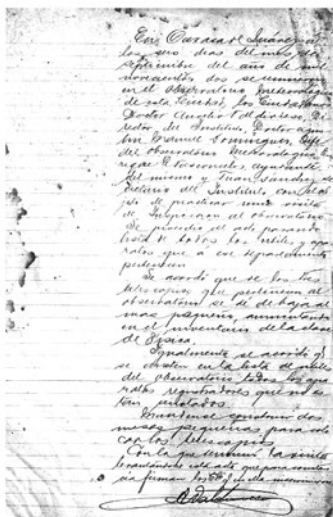 En Oaxaca de Juárez, a
los seis dias del mes de
septiembre del año de mil
novecientos dos se reunieron
en el Observatorio Meteorológico
de esta Ciudad, los Ciudadanos
Doctor Aurelio Valdivieso, Di
rector del Instituto, Doctor
Manuel Dominguez, Jefe
del observatorio Meteorológico
E. Vasconcelos, ayudante
del mismo y Juan Sánchez, Se
cretario del Instituto con el ob
jeto de practicar una visita
de Inspeccion al observatorio
Se procedió al acto pasando
lista de todos los útiles y apa
ratos que a ese departamento
pertenecen
Se acordó que de los tres
telescopios que pertenecen al
observatorio se dé de baja al
mas pequeño, aumentando
en el inventario de la clase
de Física.
Igualmente se acordó q'
se en la lista de utiles
del observatorio todos los apa
ratos registradores que no es
tan anotados.
construir dos
mesas pequeñas para colo
car los telescopios
Con lo que terminó la visita
levantándose esta acta que para constan
cia firman los que en ella
A. Valdivieso